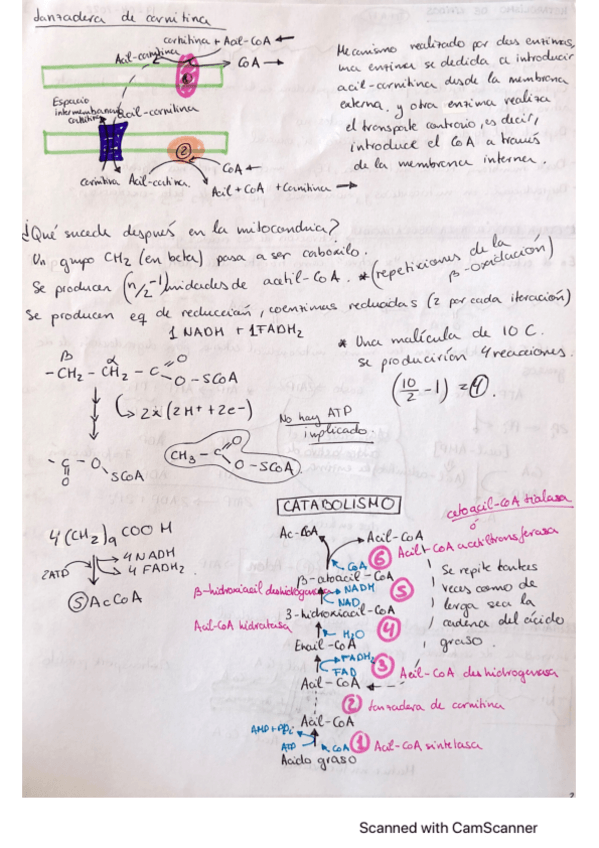 lanzadera de carnitina
carnitina + Acil-CoA
Acil-carnitina
CoA
Espacio
intermembranoso
Acil-carnitina
2
CoA
carnitina
Acil + CoA + Carnitina
Mecanismo realizado por dos enzimas,
una enzima se dedida a introducir
acil-carnitina desde la membrana
externa, y otra enzima realiza
el transporte contrario, es decir,
introduce el CoA a través
de la membrana interna.
¿Qué sucede después en la mitocondria?
Un grupo CH2 (en beta) pasa a ser carboxilo.
Se producen (n/2-1) unidades de acetil-CoA. * (repeticiones de la
β-oxidación)
Se producen eq de reducción, coenzimas reducidas (2 por cada iteración)
1 NADH + 1 FADH2
* Una malícula de 10 C.
se producirían 4 reacciones.
(10/2 - 1) = 4.
β α
-CH2 - CH2 - C = O
O - SCoA
2x (2H+ + 2e-)
No hay ATP
implicado.
CH3 - C = O
O - SCoA
- C - O
O SCoA
CATABOLISMO
4 (CH2)9 COO H
2ATP
4 NADH
4 FADH2
5 AcCoA
cetoacil-CoA tiolasa
ó
Acil-CoA acetiltransferasa
Ac-CoA
Acil-CoA
6
CoA
β-cetoacil-CoA
β-hidroxiacil deshidrogenasa
NADH
NAD
5
3-hidroxiacil-CoA
Acil-CoA hidratasa
H2O
4
Enoil-CoA
FADH2
FAD
3
Acil-CoA deshidrogenasa
Acil-CoA
2
lanzadera de carnitina
Acil-CoA
AMP+PPi
ATP
CoA
1
Acil-CoA sintetasa
Ácido graso
Se repite tantas
veces como de
larga sea la
cadena del ácido
graso.
2
Scanned with CamScanner